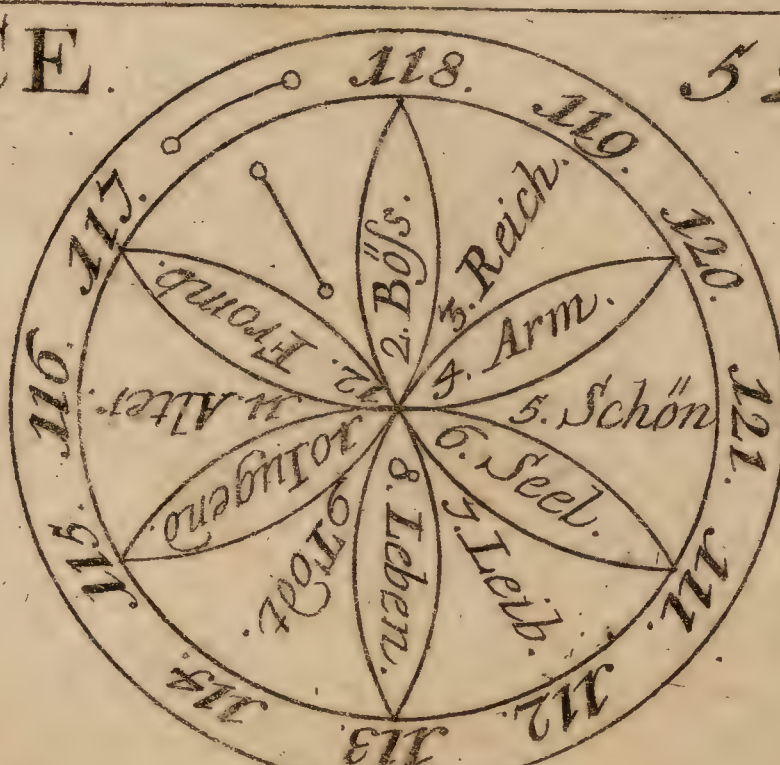 CE.
118.
119.
120.
121.
111.
112.
113.
114.
115.
116.
117.
2. Böſs.
3. Reich.
4. Arm.
5. Schön
6. Seel.
7. Leib.
8. Leben.
9 Todt.
10 Iugend.
11. Alter.
12. Fromb.